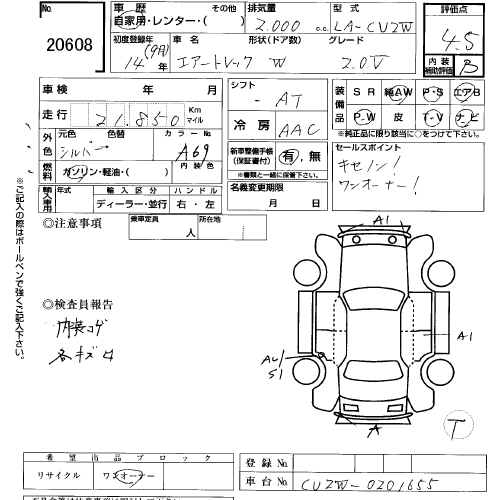 No 20608
車歴 その他 自家用・レンター・( )
排気量 2.000 c.c.
型式 LA-CU2W
評価点 4.5
内装補助評価 B
初度登録年 14年 (9月)
車名 エアートレック
形状(ドア数) W
グレード 2.0V
車検 年 月
シフト - AT
装備品 SR 純AW P・S エアB
P・W 皮 T・V ナビ
※純正品に限り該当に○をつけて下さい。
走行 21.850 Km マイル
冷房 AAC
外色 元色 シルバー 色替 カラーNo. A69
新車整備手帳(保証書付) 有. 無
※書類と一緒に保管下さい。
セールスポイント
キセノン!
ワンオーナー!
燃料 ガソリン・軽油・( ) 内装色
名義変更期限 月 日
輸入車用 年式 輸入区分 ディーラー・並行 ハンドル 右・左
◎注意事項
乗車定員 人 所在地
※ご記入の際はボールペンで強くご記入下さい。
◎検査員報告
内装コゲ
各キズ
A1
A1
S1
A
T
希望出品ブロック
リサイクル ワンオーナー
登録No.
車台No. CU2W-0201655